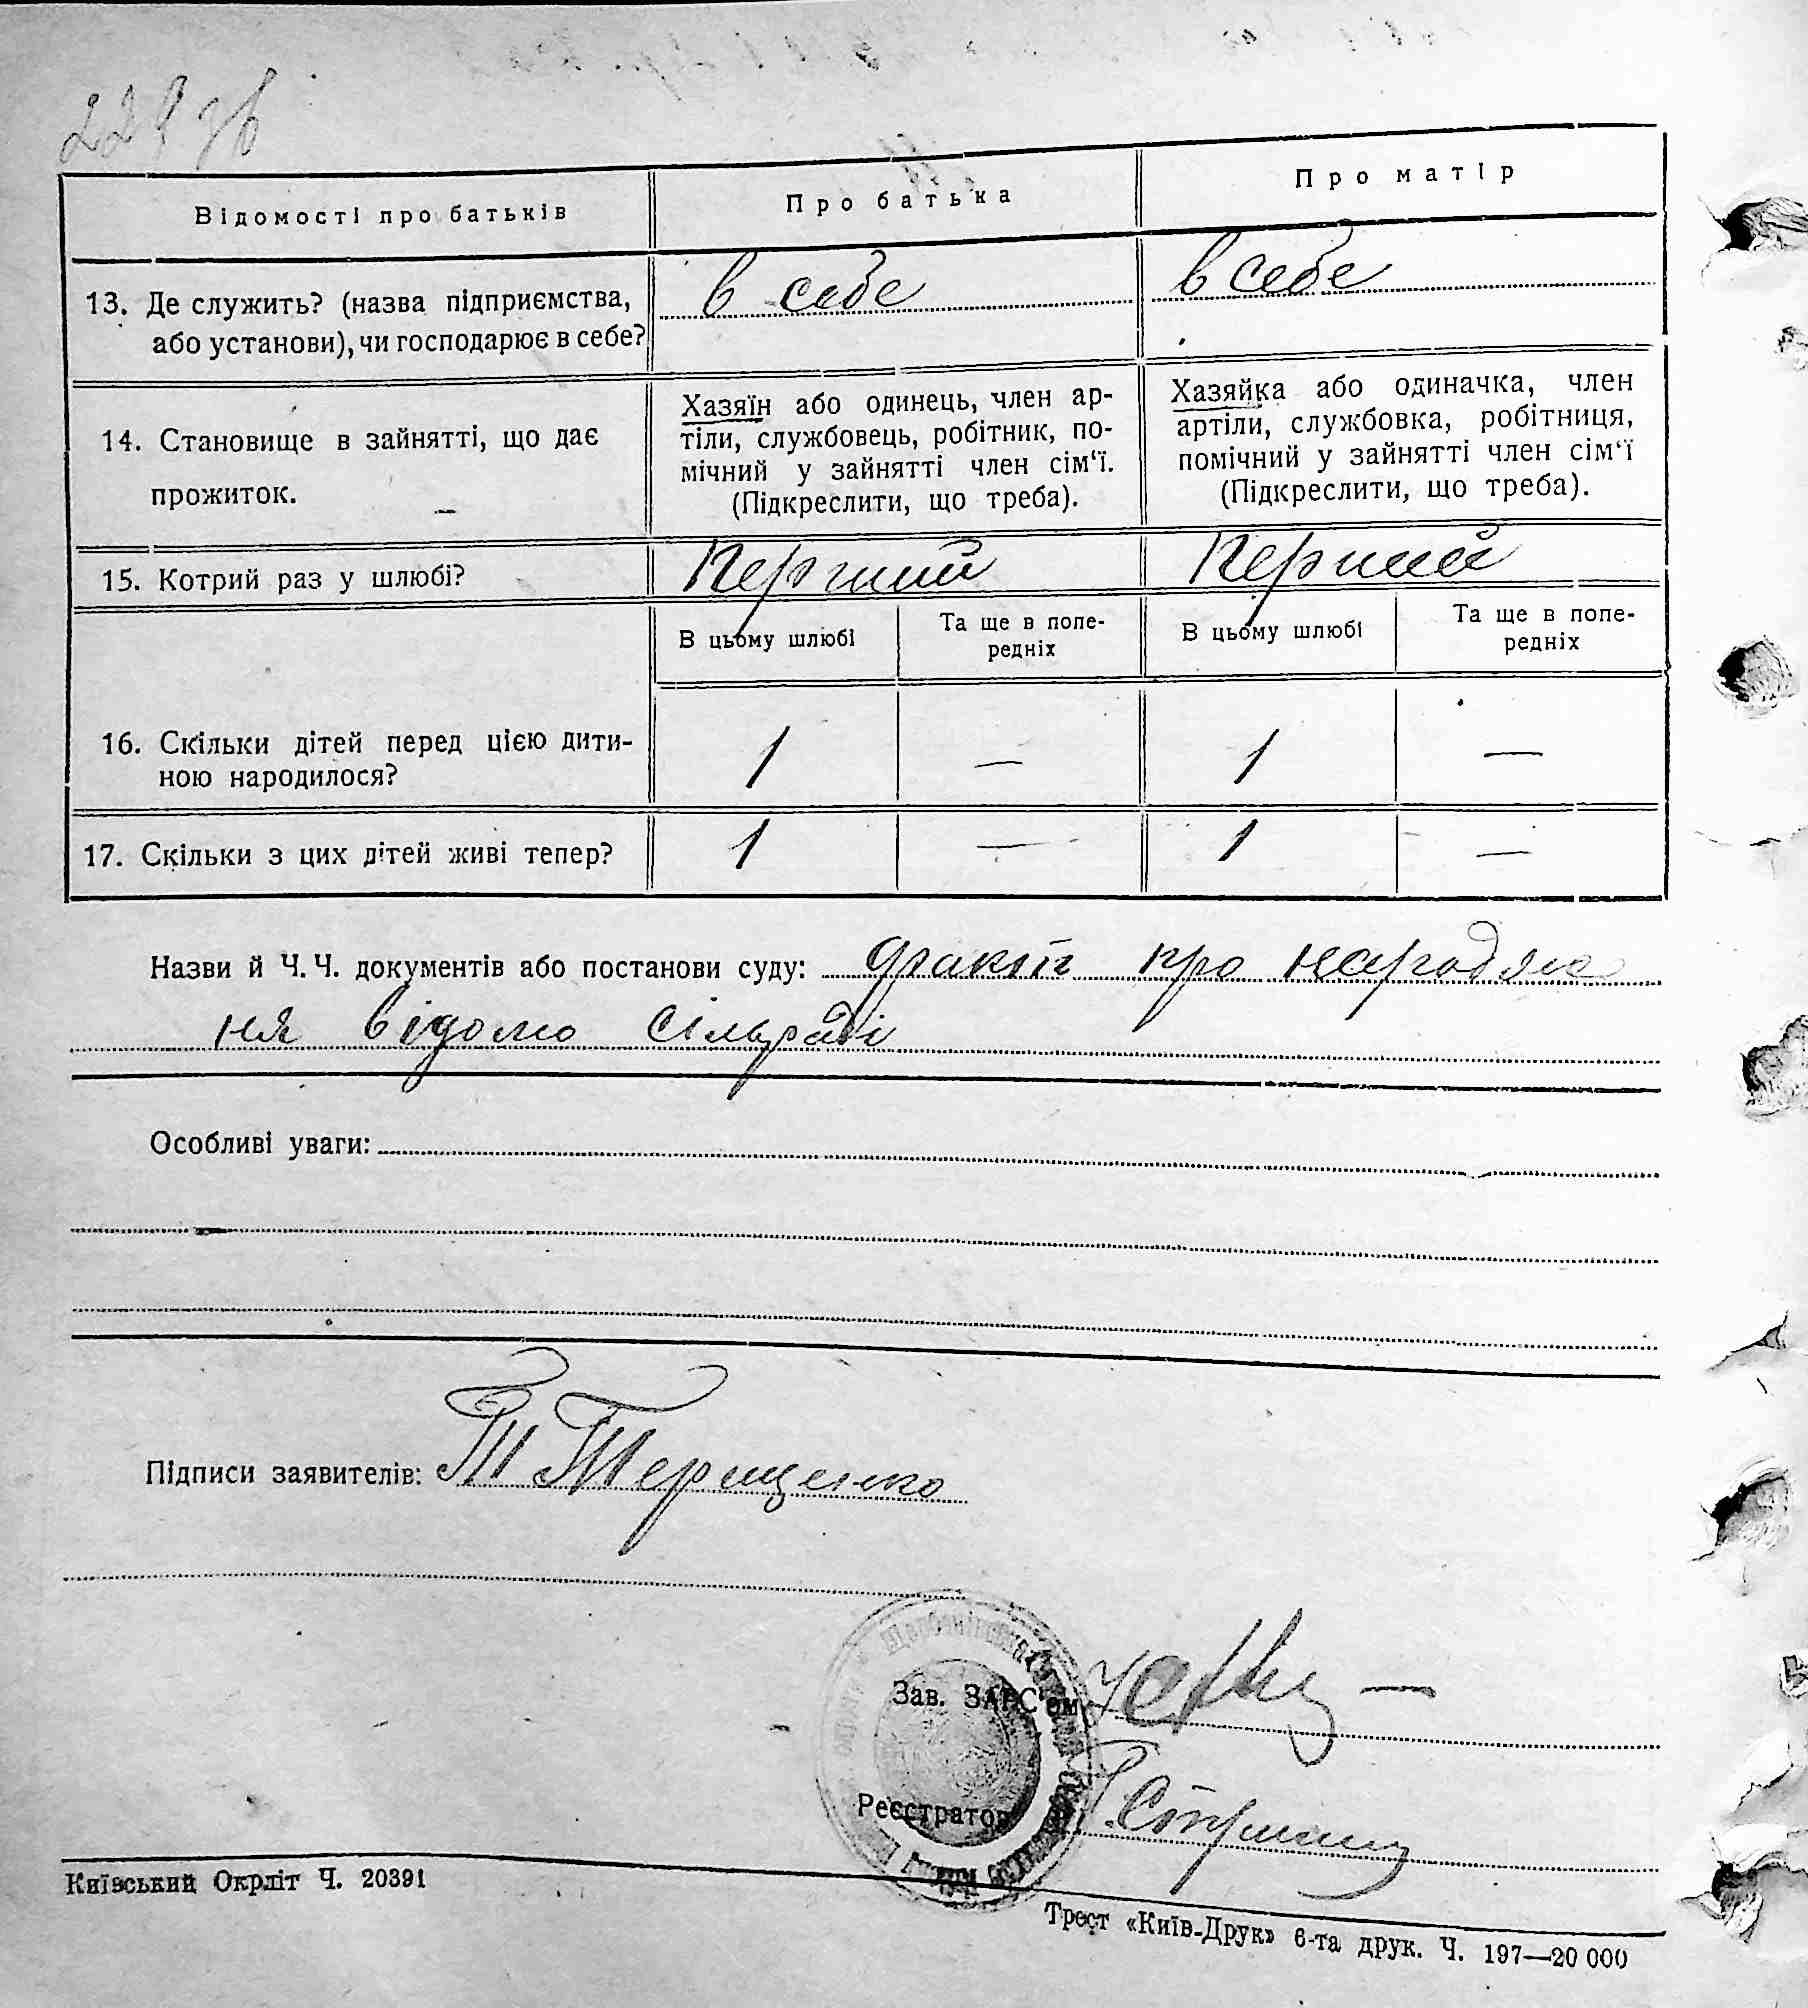 229 зв
Відомості про батьків
Про батька
Про матір
13. Де служить? (назва підприємства,
або установи), чи господарює в себе?
в себе
в себе
14. Становище в зайнятті, що дає
прожиток.
Хазяїн або одинець, член ар-
тіли, службовець, робітник, по-
мічний у зайнятті член сім‘ї.
(Підкреслити, що треба).
Хазяйка або одиначка, член
артіли, службовка, робітниця,
помічний у зайнятті член сім‘ї
(Підкреслити, що треба).
15. Котрий раз у шлюбі?
Перший
Перший
В цьому шлюбі
Та ще в попе-
редніх
В цьому шлюбі
Та ще в попе-
редніх
16. Скільки дітей перед цією дити-
ною народилося?
1 — 1 —
17. Скільки з цих дітей живі тепер?
1 — 1 —
Назви й Ч. Ч. документів або постанови суду: факт про народжен
ня відомо сільраді
Особливі уваги:
Підписи заявителів: Т Терещенко
Зав. ЗАГС'ом
Реєстратор
Київський Окрліт Ч. 20391
Трест «Київ-Друк» 6-та друк. Ч. 197—20 000